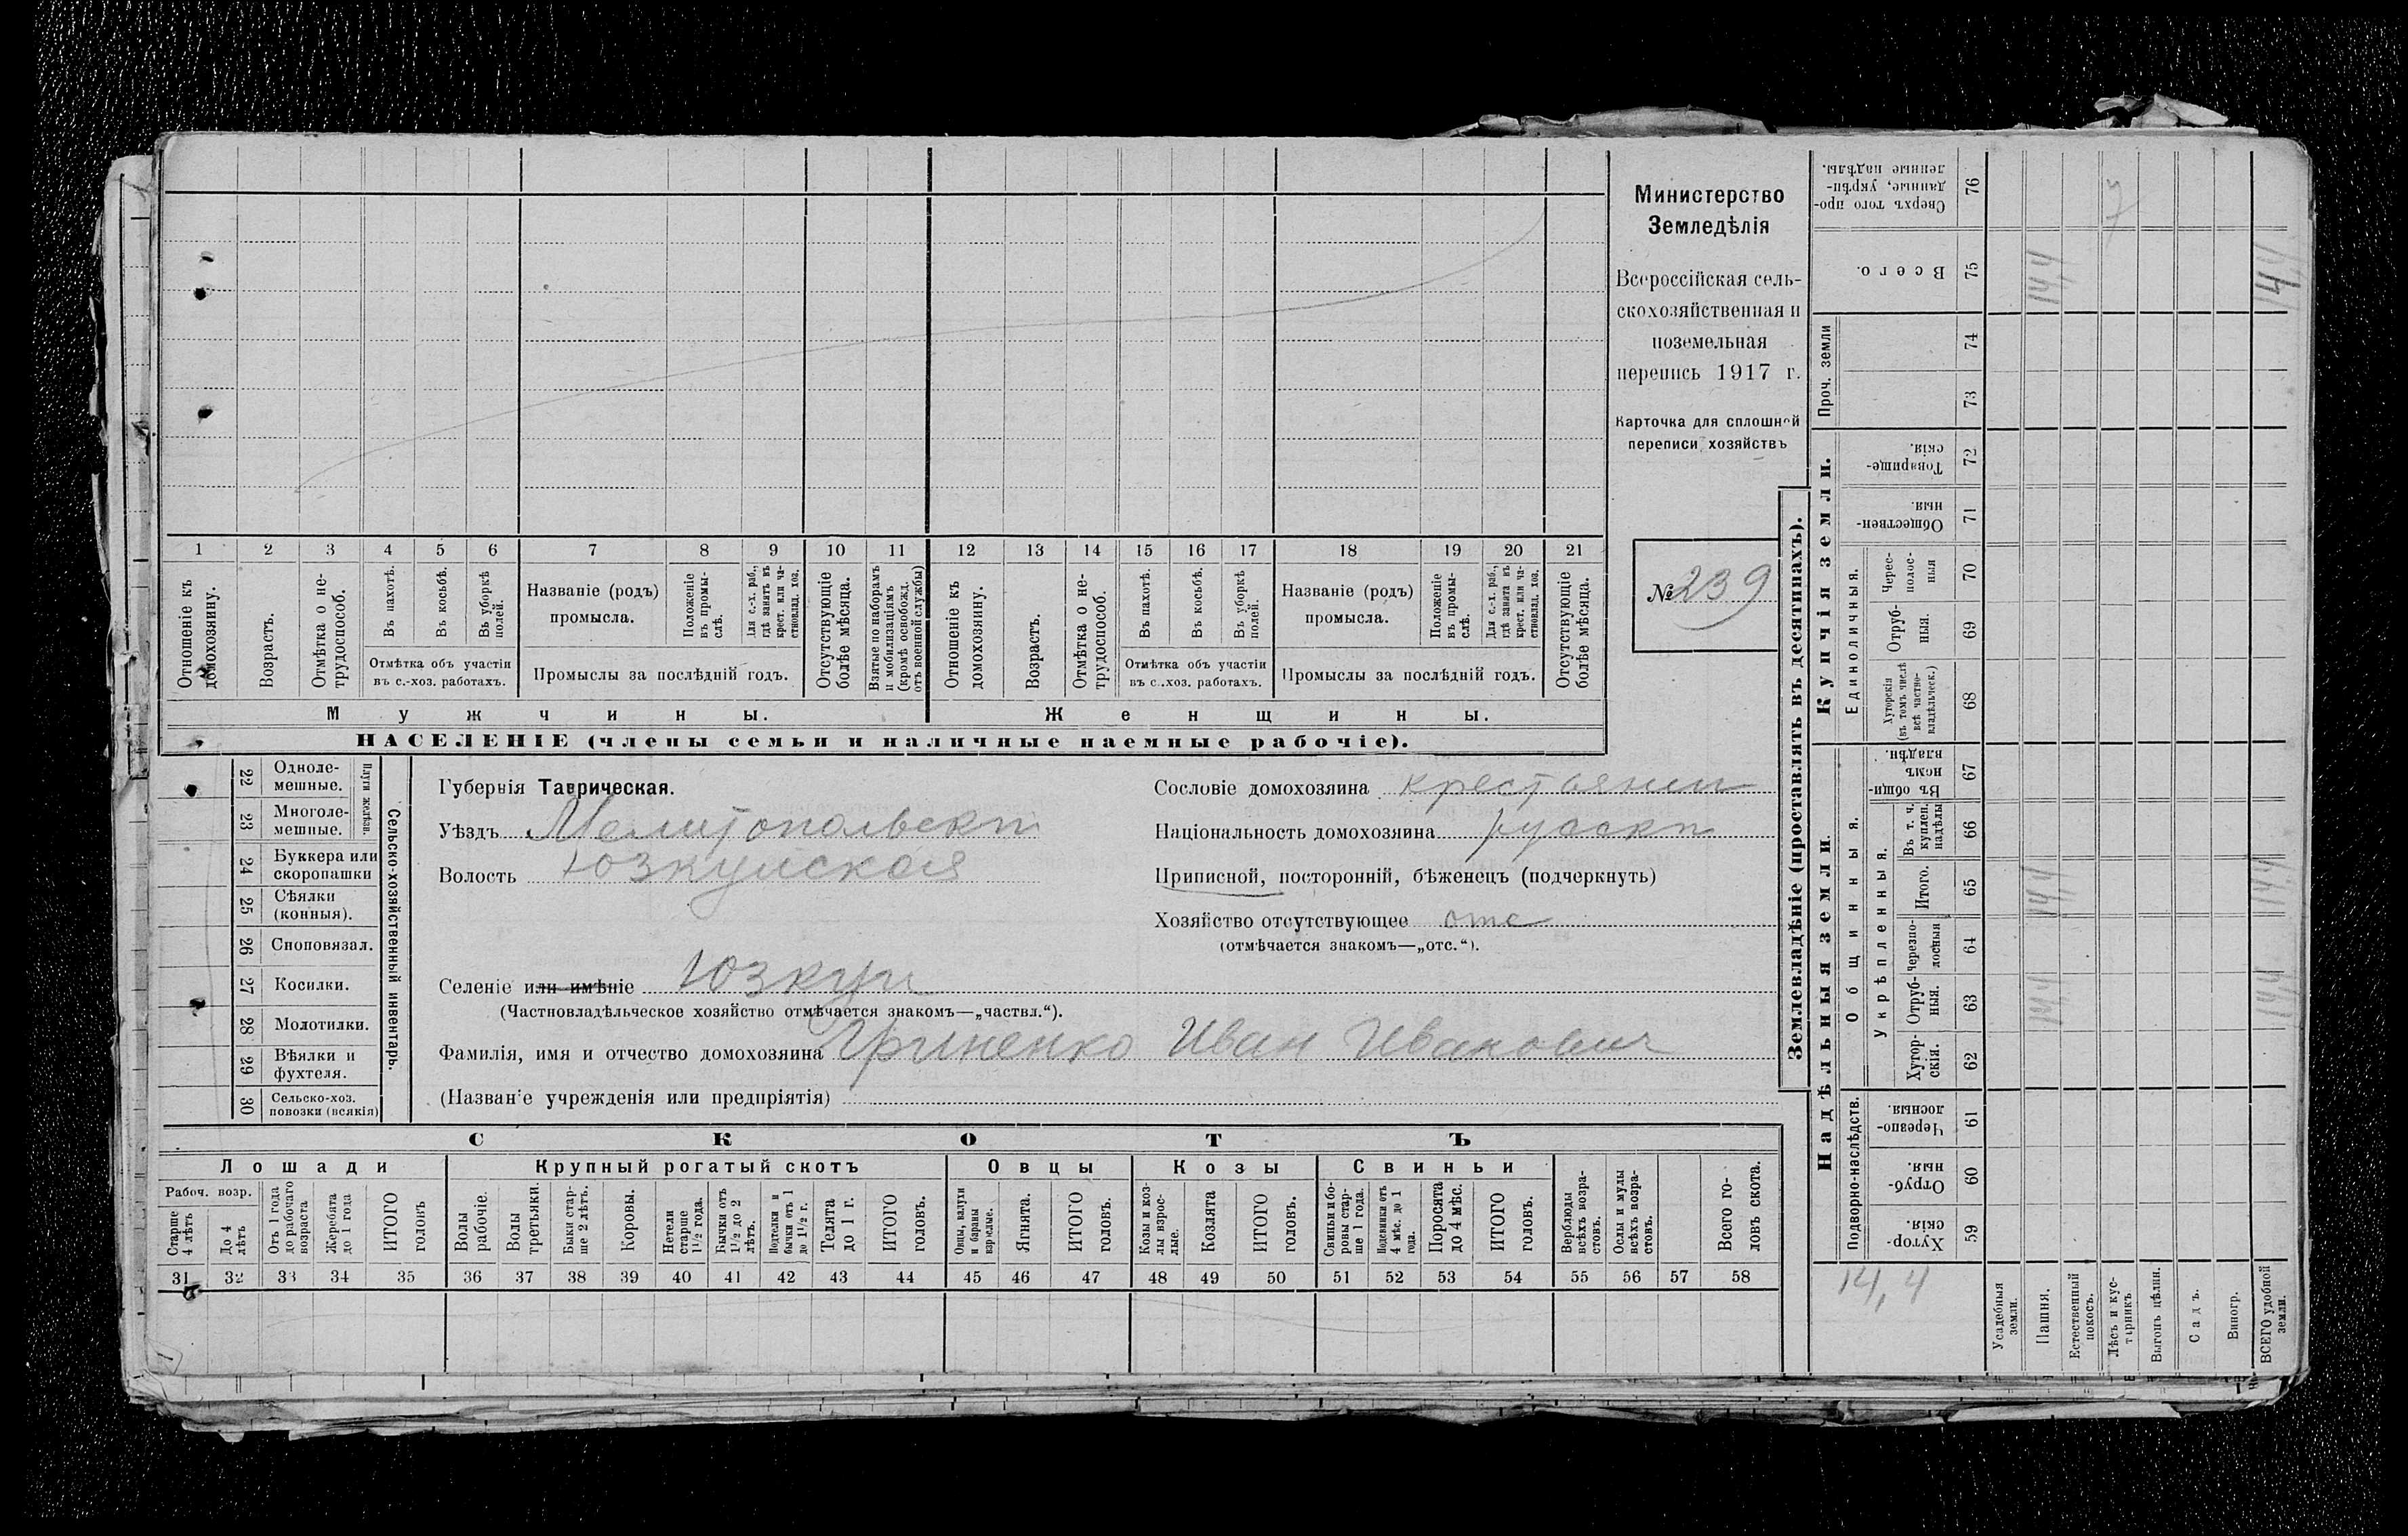 Министерство
Земледѣлія
Всероссійская сель-
скохозяйственная и
поземельная
перепись 1917 г.
Карточка для сплошной
переписи хозяйствъ
№ 239
1 2 3 4 5 6 7 8 9 10 11 12 13 14 15 16 17 18 19 20 21
Отношеніе къ домохозяину.
Возрастъ.
Отмѣтка о не-
трудоспособ.
Въ пахотѣ.
Въ косьбѣ.
Въ уборкѣ полей.
Отмѣтка объ участіи
въ с.-хоз. работахъ.
Названіе (родъ)
промысла.
Положеніе
въ промы-
слѣ.
Для с.-х. раб.,
гдѣ занятъ въ
крест. или ча-
стновлад. хоз.
Промыслы за послѣдній годъ.
Отсутствующіе
болѣе мѣсяца.
Взятые по наборамъ
и мобилизаціямъ
(кромѣ освобожд.
отъ военной службы)
Отношеніе къ
домохозяину.
Возрастъ.
Отмѣтка о не-
трудоспособ.
Въ пахотѣ.
Въ косьбѣ.
Въ уборкѣ
полей.
Отмѣтка объ участіи
въ с.-хоз. работахъ.
Названіе (родъ)
промысла.
Положеніе
въ промы-
слѣ.
Для с.-х. раб.,
гдѣ занята въ
крест. или ча-
стновлад. хоз.
Промыслы за послѣдній годъ.
Отсутствующіе
болѣе мѣсяца.
Мужчины.
Женщины.
НАСЕЛЕНІЕ (члены семьи и наличные наемные рабочіе).
22 Одноле-
мешные.
23 Многоле-
мешные.
Плуги желѣзн.
24 Буккера или
скоропашки
25 Сѣялки
(конныя).
26 Сноповязал.
27 Косилки.
28 Молотилки.
29 Вѣялки и
фухтеля.
30 Сельско-хоз.
повозки (всякія)
Сельско-хозяйственный инвентарь.
Губернія Таврическая.
Уѣздъ Мелитопольскп
Волость Юзкуйская
Селеніе или имѣніе Юзкуи
(Частновладѣльческое хозяйство отмѣчается знакомъ—„частвл.“).
Фамилія, имя и отчество домохозяина Гриненко Иван Иванович
(Названіе учрежденія или предпріятія)
Сословіе домохозяина крестьянин
Національность домохозяина русскп
Приписной, посторонній, бѣженецъ (подчеркнуть)
Хозяйство отсутствующее отс
(отмѣчается знакомъ—„отс.“).
СКОТЪ
Лошади
Крупный рогатый скотъ
Овцы
Козы
Свиньи
Рабоч. возр.
Старше
4 лѣтъ
До 4
лѣтъ
Отъ 1 года
до рабочаго
возраста
Жеребята
до 1 года
ИТОГО
головъ
Волы
рабочіе.
Волы
третьяки.
Быки стар-
ше 2 лѣтъ.
Коровы.
Нетели
старше
1½ года.
Бычки отъ
1½ до 2
лѣтъ.
Подтелки и
бычки отъ 1
до 1½ г.
Телята
до 1 г.
ИТОГО
головъ.
Овцы, валухи
и бараны
взрослые.
Ягнята.
ИТОГО
головъ.
Козы и коз-
лы взрос-
лые.
Козлята
ИТОГО
головъ.
Свиньи и бо-
ровы стар-
ше 1 года.
Подсвинки отъ
4 мѣс. до 1
года.
Поросята
до 4 мѣс.
ИТОГО
головъ.
Верблюды
всѣхъ возра-
стовъ.
Ослы и мулы
всѣхъ возра-
стовъ.
Всего го-
ловъ скота.
31 32 33 34 35 36 37 38 39 40 41 42 43 44 45 46 47 48 49 50 51 52 53 54 55 56 57 58
Землевладѣніе (проставлять въ десятинахъ).
Купчія земли.
Надѣльныя земли.
Сверхъ того про-
данные, укрѣп-
ленные надѣлы. 76 7
Всего. 75 14,4 14,4
Проч. земли
74
73
Товарище-
скія. 72
Обществен-
ныя. 71
Единоличныя.
Черес-
полос-
ныя 70
Отруб-
ныя. 69
Хуторскія
(въ томъ числѣ
всѣ частно-
владѣльческ.) 68
Общинныя.
Въ общин-
номъ
владѣн. 67
Укрѣпленныя.
Въ т. ч.
куплен.
надѣлы 66
Итого. 65 14,4 14,4
Черезпо-
лосныя 64
Отруб-
ныя. 63 14,4 14,4
Хутор-
скія. 62
Подворно-наслѣдств.
Черезпо-
лосныя. 61
Отруб-
ныя. 60
Хутор-
скія. 59
14,4
Усадебныя
земли.
Пашня.
Естественный
покосъ.
Лѣсъ и кус-
тарникъ
Выгонъ цѣлин.
Садъ.
Виногр.
ВСЕГО удобной
земли.